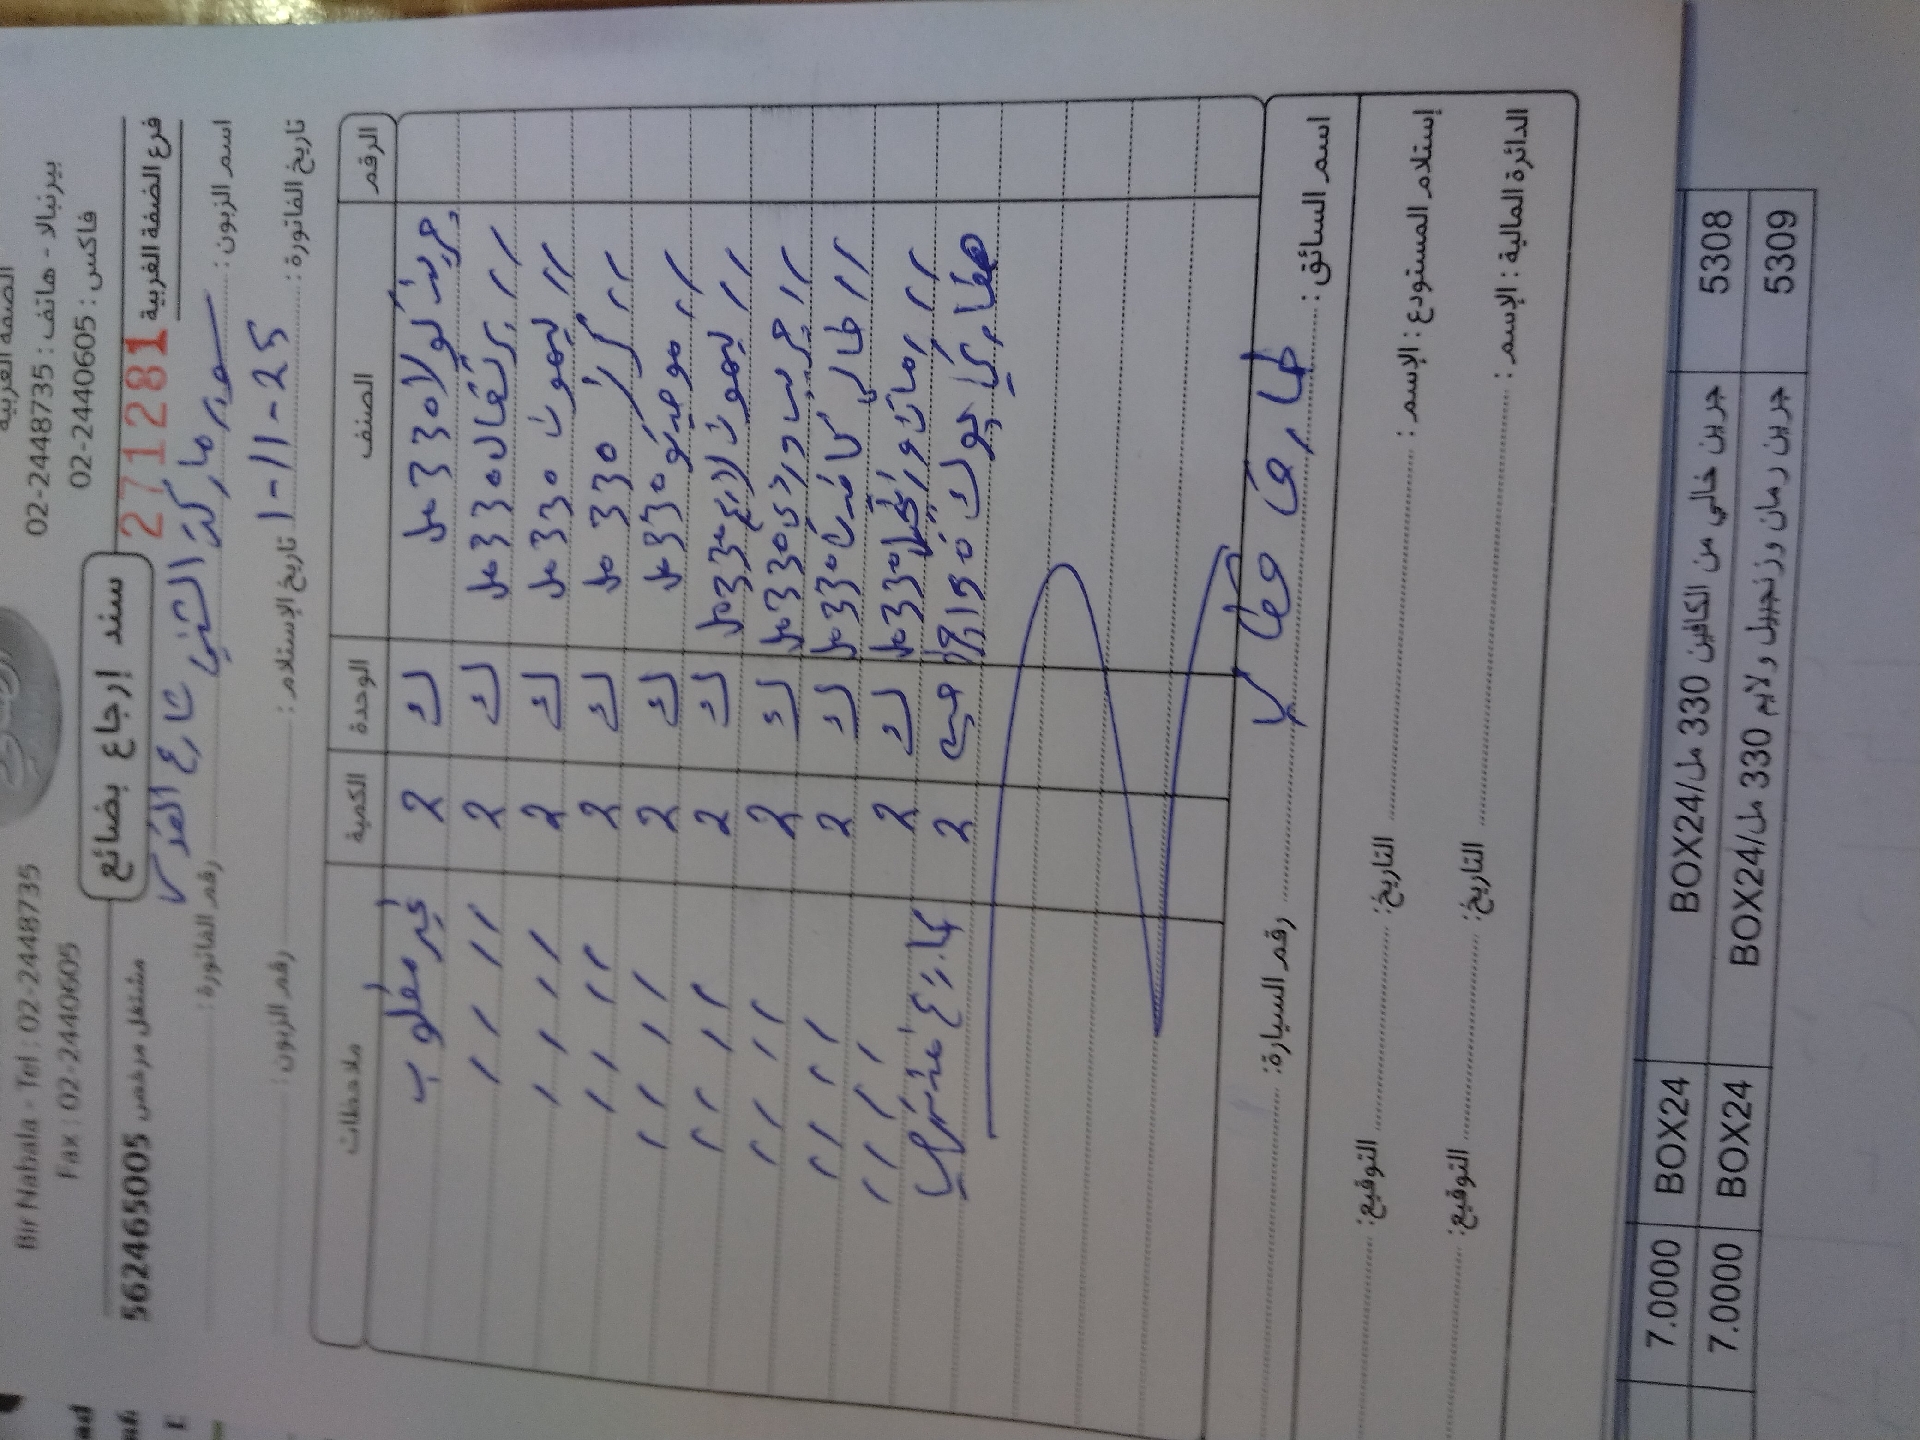 الضفة الغربية
بيرنبالا - هاتف : 02-2448735
فاكس : 02-2440605
Bir Nabala - Tel : 02-2448735
Fax : 02-2440605
فرع الضفة الغربية
271281
سند ارجاع بضائع
مشتغل مرخص 562465005
اسم الزبون : سوبر ماركت التيتي شارع القدس
رقم الفاتورة :
تاريخ الفاتورة : 25-11-1
تاريخ الإستلام :
رقم الزبون :
الرقم الصنف الوحدة الكمية ملاحظات
جرين كولا 330 مل ك 2 غير مطلوب
// برتقال 330 مل ك 2 // //
// ليمون 330 مل ك 2 // //
// كرز 330 مل ك 2 // //
// موهيتو 330 مل ك 2 // //
// ليمون لايم 330 مل ك 2 // //
// جريب وردي 330 مل ك 2 // //
// خالي كافين 330 مل ك 2 // //
// رمان وزنجبيل 330 مل ك 2 // //
2
اسم السائق :
رقم السيارة:
إستلام المستودع : الإسم :
التاريخ:
التوقيع:
الدائرة المالية : الإسم :
التاريخ:
التوقيع:
5308 جرين خالي من الكافين 330 مل/BOX24 BOX24 7.0000
5309 جرين رمان وزنجبيل ولايم 330 مل/BOX24 BOX24 7.0000